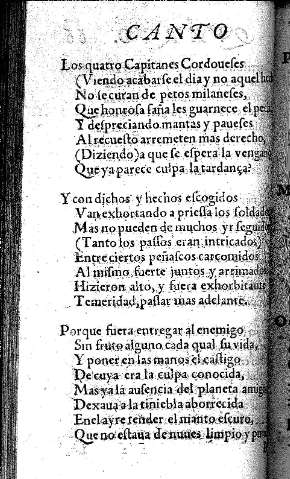 CANTO
Los quatro Capitanes Cordoueses
(Viendo acabarse el dia y no aquel
No se curan de petos milaneses,
Que honrosa saña les guarnece el pe
Y despreciando mantas y paueses
Al recuesto arremeten mas derecho,
(Diziendo) a que se espera la vengan
Que ya parece culpa la tardança?
Y con dichos y hechos escogidos
Van exhortando a priessa los soldade
Mas no pueden de muchos yr seguido
(Tanto los passos eran intricados)
Entre ciertos peñascos carcomidos
Al mismo fuerte juntos y arrimado
Hizieron alto, y fuera exhorbitante
Temeridad, passar mas adelante.
Porque fuera entregar al enemigo
Sin fruto alguno cada qual su vida,
Y poner en las manos el castigo
De cuya era la culpa conocida,
Mas ya la ausencia del planeta amigo
Dexaua a la tiniebla aborrecida
En el ayre tender el manto escuro,
Que no estaua de nuues limpio y pu